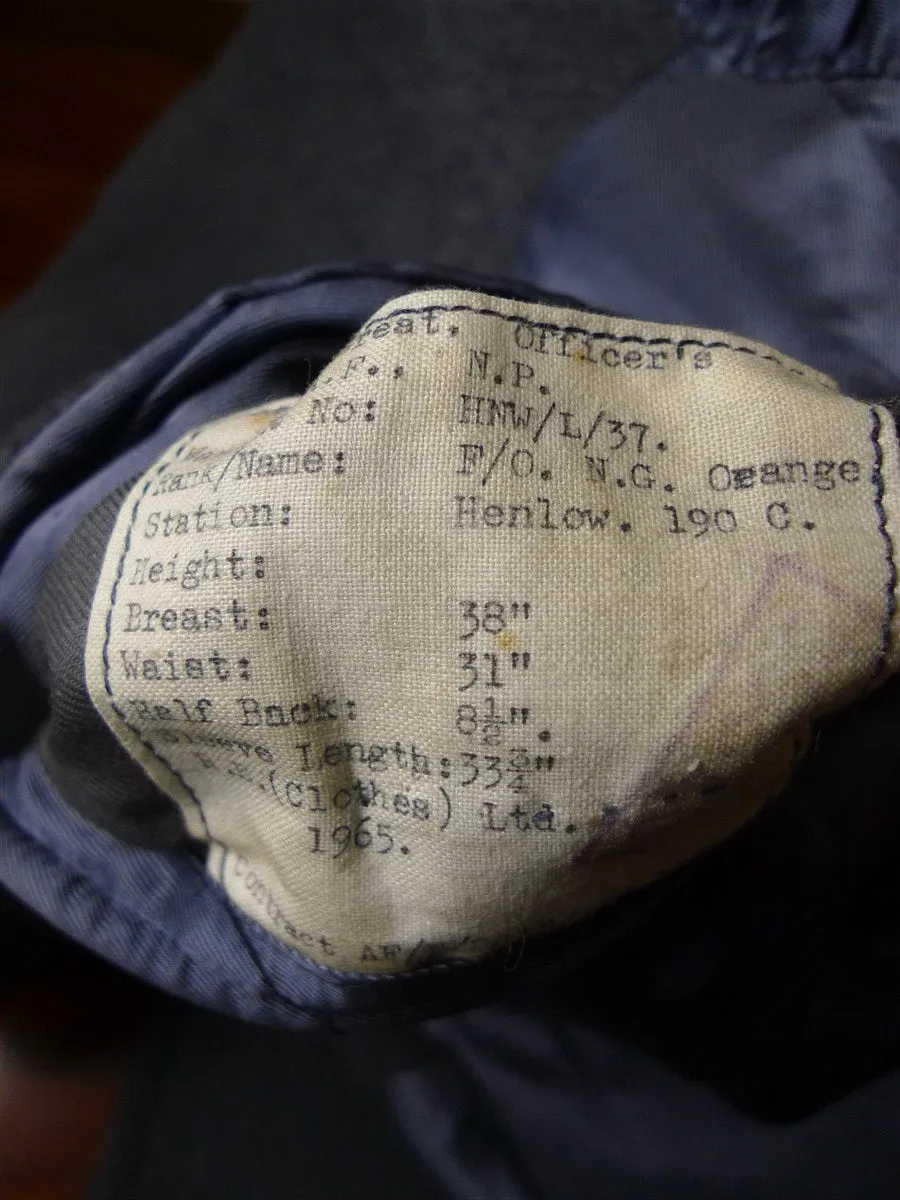 Officer's
.F., N.P.
No: HNW/L/37.
Rank/Name: F/O. N.G. Orange
Station: Henlow. 190 C.
Height:
Breast: 38"
Waist: 31"
Half Back: 8½".
Sleeve Length: 33¾"
(Clothes) Ltd.
1965.
Contract